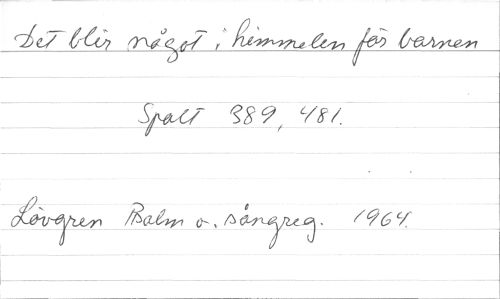 Det blir något i himmelen för barnen
Spalt 389, 481.
Lövgren Psalm o. sångreg. 1964.